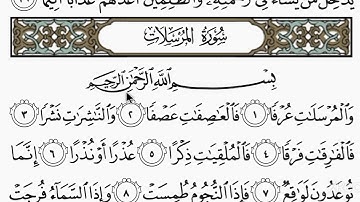 يُدْخِلُ مَن يَشَاءُ فِي رَحْمَتِهِ وَالظَّالِمِينَ أَعَدَّ لَهُمْ عَذَابًا أَلِيمًا
سُورَةُ المُرْسَلَاتِ
بِسْمِ اللَّهِ الرَّحْمَٰنِ الرَّحِيمِ
وَالْمُرْسَلَاتِ عُرْفًا ١ فَالْعَاصِفَاتِ عَصْفًا ٢ وَالنَّاشِرَاتِ نَشْرًا ٣
فَالْفَارِقَاتِ فَرْقًا ٤ فَالْمُلْقِيَاتِ ذِكْرًا ٥ عُذْرًا أَوْ نُذْرًا ٦ إِنَّمَا
تُوعَدُونَ لَوَاقِعٌ ٧ فَإِذَا النُّجُومُ طُمِسَتْ ٨ وَإِذَا السَّمَاءُ فُرِجَتْ